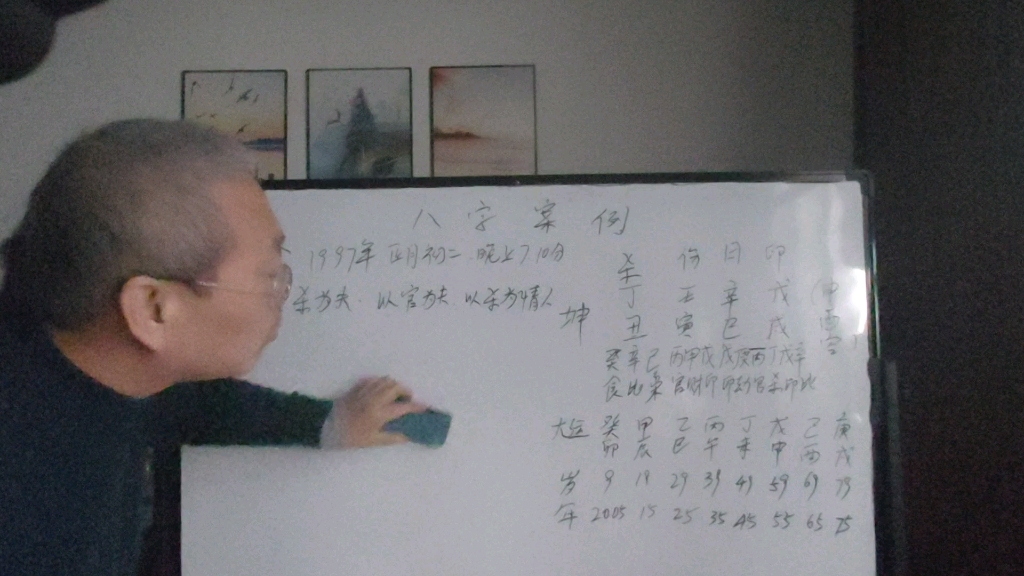 八字案例
1997年 正月初二 晚上7.10分
杀为夫、以官为夫、以杀为情人
杀 伤 日 印
坤 丁 壬 辛 戊
丑 寅 巳 戌
癸辛己 丙甲戊 戊庚丙 丁戊辛
食比枭 官财印 印劫官 杀印比
大运 癸卯 甲辰 乙巳 丙午 丁未 戊申 己酉 庚戌
岁 9 19 29 39 49 59 69 79
年 2005 15 25 35 45 55 65 75